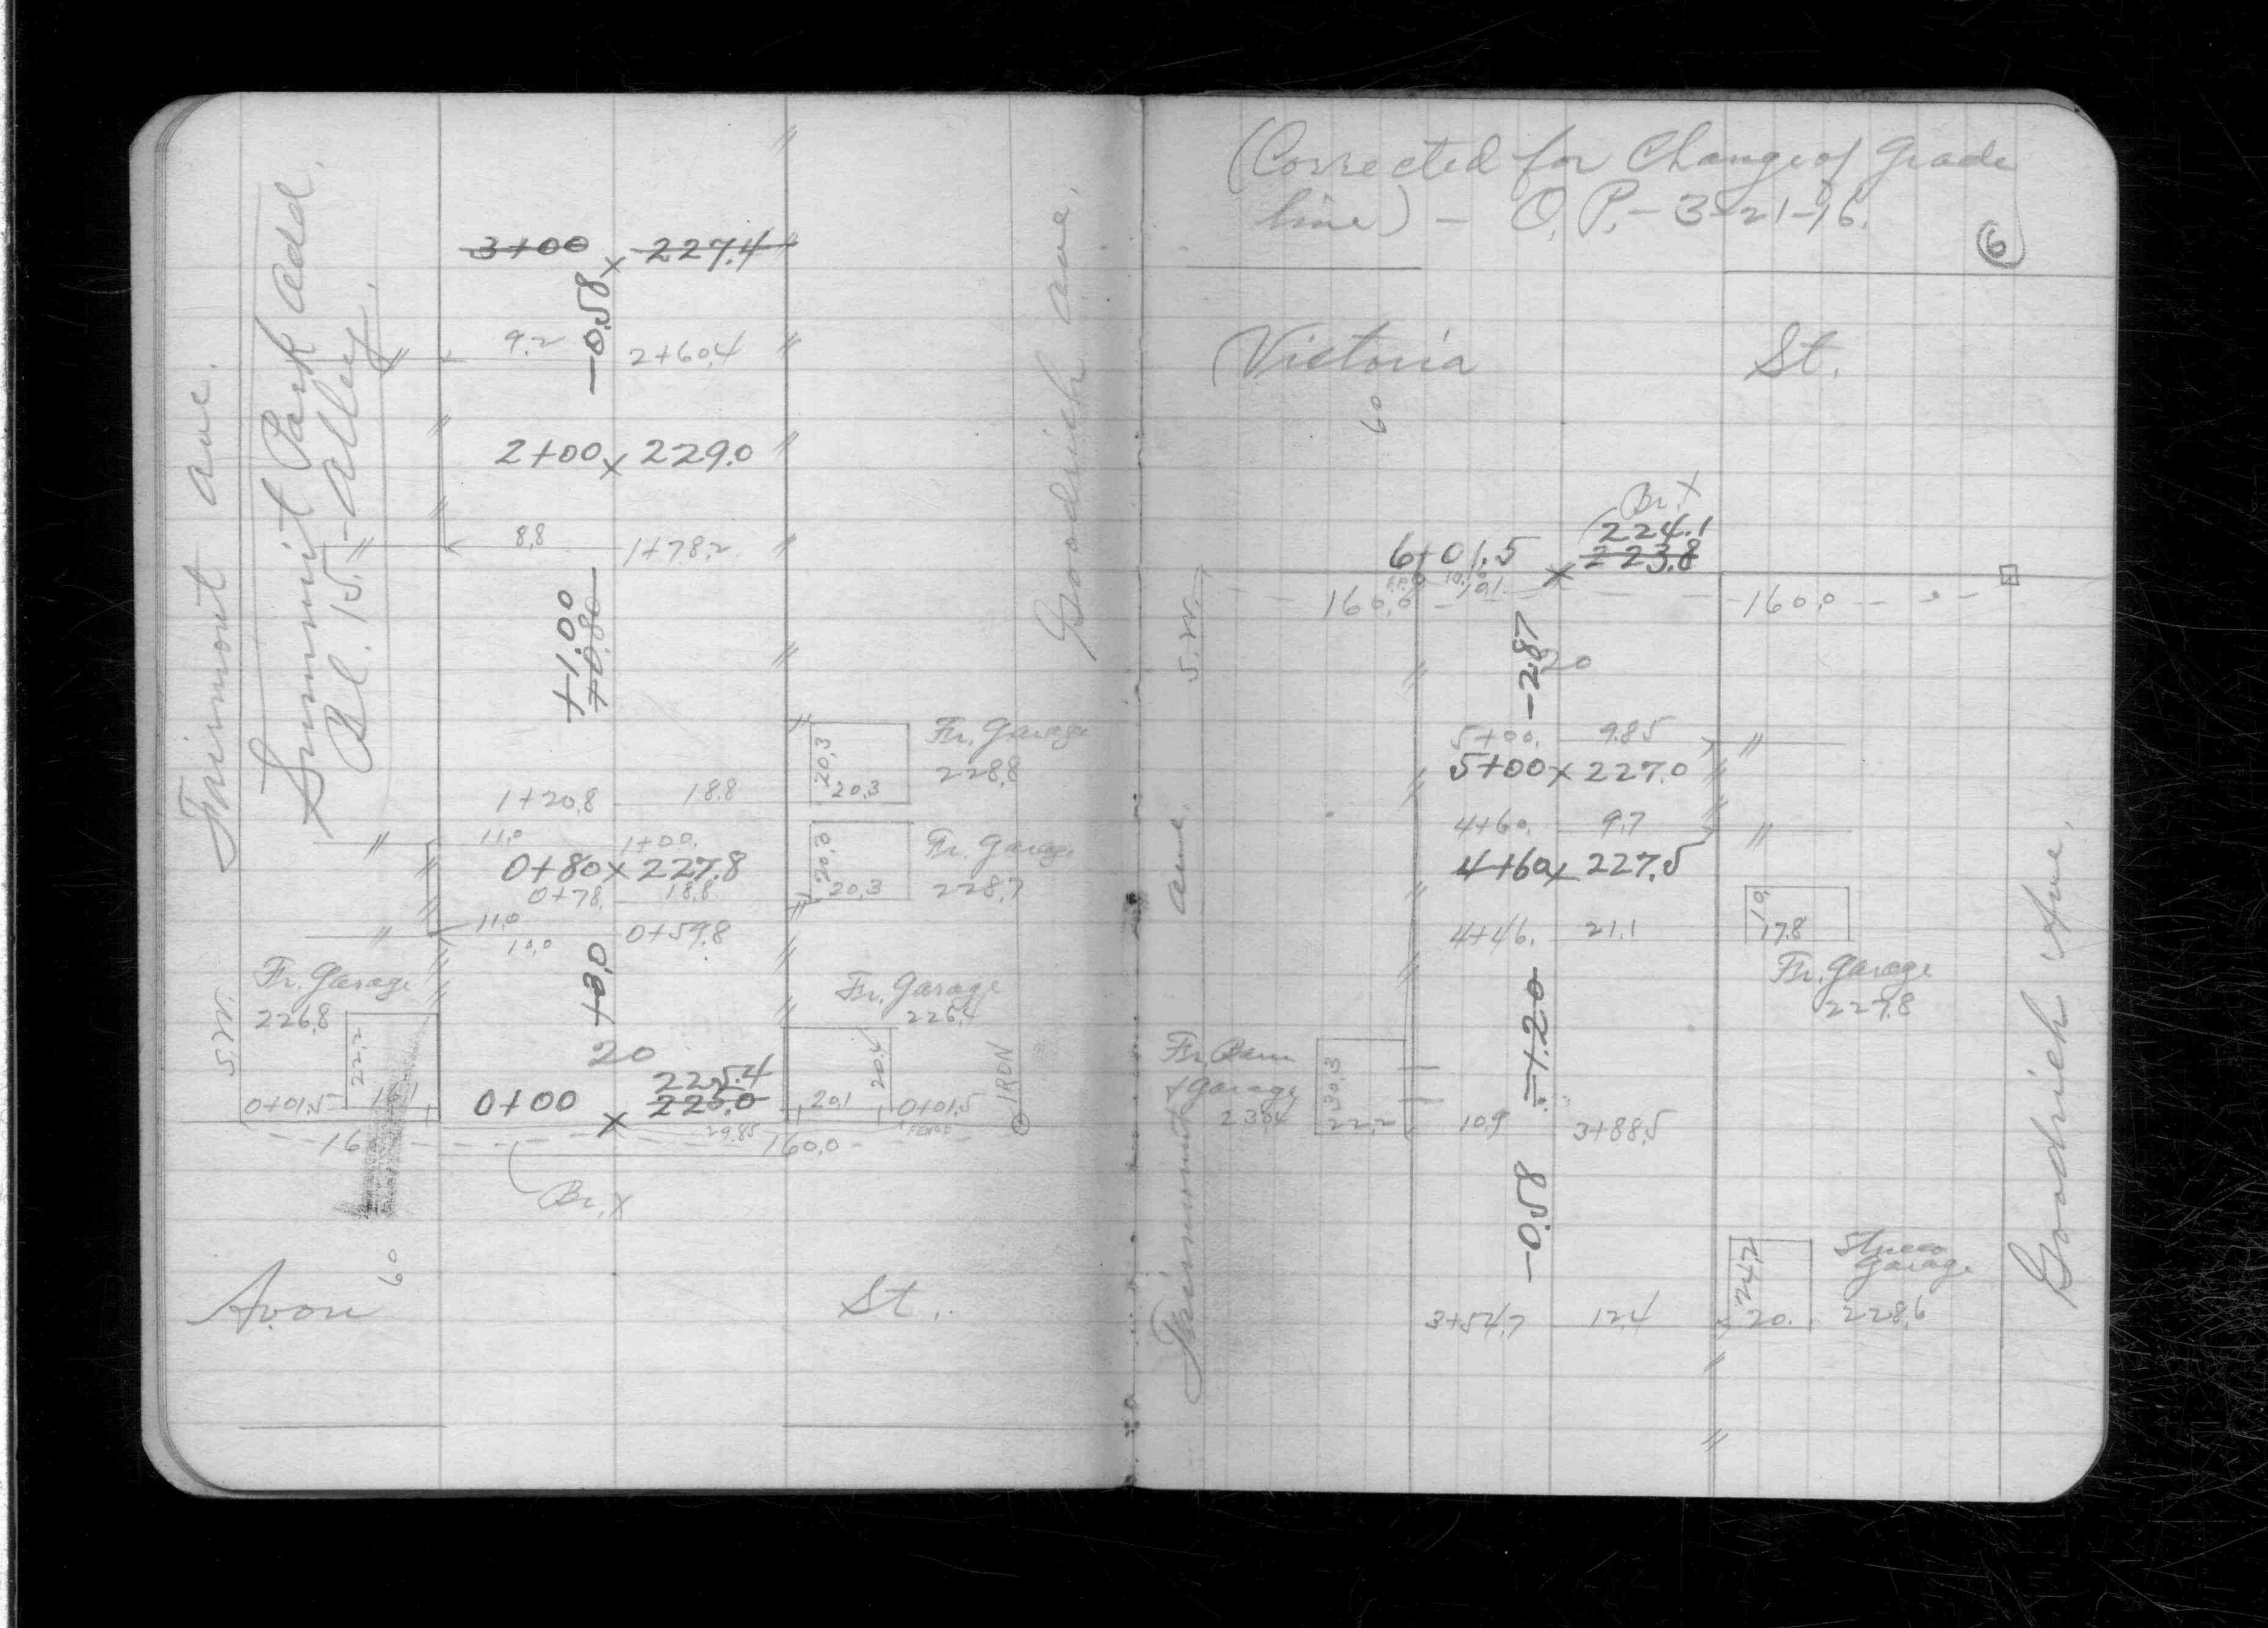 Fairmount ave.
Summit Park Add.
Bl. 15. - Alley.
3+00 x 227.4
-0.58
9.2 2+60.4
2+00 x 229.0
8.8 1+78.2
+1.00
+0.80
Goodrich ave.
20.3
20.3
Fr. Garage
228.8
1+20.8 18.8
11.0 1+00.
0+80 x 227.8
0+78. 18.8
20.0
20.3
Fr. Garage
228.7
11.0
10.0 0+59.8
+3.0
Fr. Garage
226.8
22.2
S.W.
Fr. Garage
20.4
20
225.4
0+00 x 225.0
0+01.5
20.1 0+01.5
FENCE
IRON
29.85
16
160.0
Br. X
60
Avon St.
(Corrected for Change of Grade
line) - O.P. - 3-21-16.
6
Victoria St.
60
Br. X
224.1
6+01.5 x 223.8
10.1
160.0 160.0
S.W.
-2.87
20
5+00. 9.85
5+00 x 227.0
4+60. 9.7
4+60 x 227.5
4+46. 21.1
19.
17.8
Fr. Garage
227.8
-1.20
Fr. Barn
& Garage
230.4
30.3
22.2
10.9 3+88.5
-0.58
24.2
20.
Stucco
Garage
228.6
3+54.7 12.4
Fairmount ave.
Goodrich Ave.